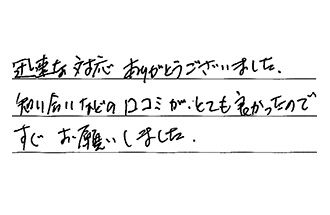 迅速な対応 ありがとうございました.
知り合いなどの口コミが、とても良かったので
すぐ お願いしました.